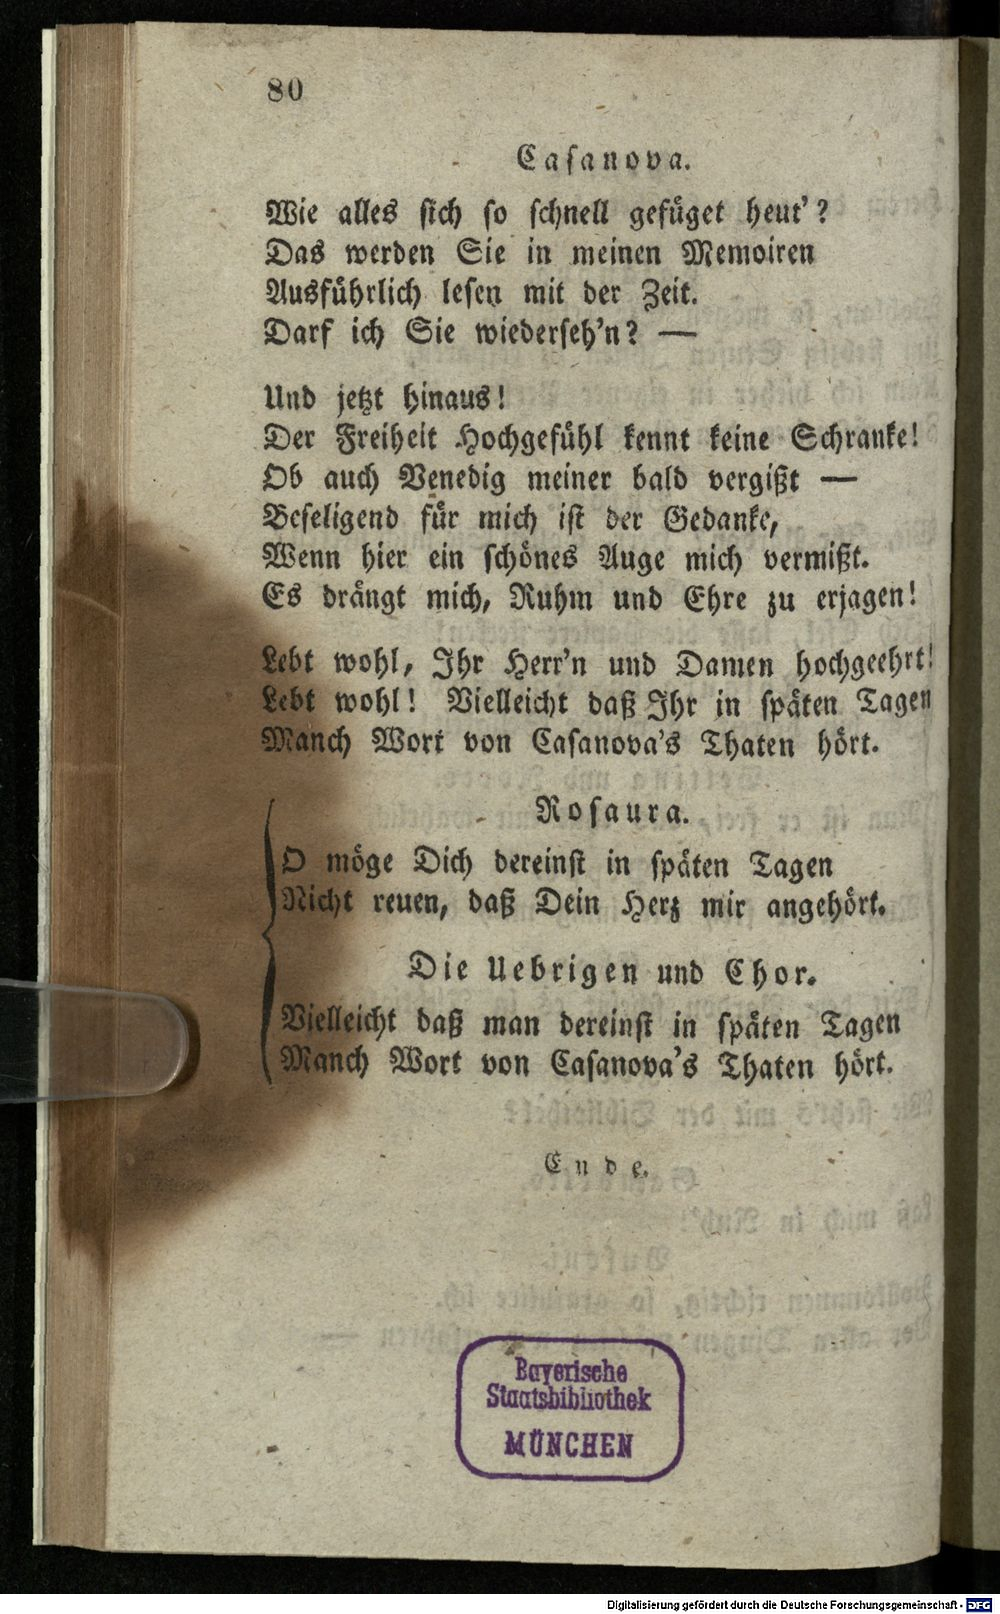 80
Casanova.
Wie alles sich so schnell gefüget heut'?
Das werden Sie in meinen Memoiren
Ausführlich lesen mit der Zeit.
Darf ich Sie wiederseh'n? —
Und jetzt hinaus!
Der Freiheit Hochgefühl kennt keine Schranke!
Ob auch Venedig meiner bald vergißt —
Beseligend für mich ist der Gedanke,
Wenn hier ein schönes Auge mich vermißt.
Es drängt mich, Ruhm und Ehre zu erjagen!
Lebt wohl, Ihr Herr'n und Damen hochgeehrt!
Lebt wohl! Vielleicht daß Ihr in späten Tagen
Manch Wort von Casanova's Thaten hört.
Rosaura.
O möge Dich dereinst in späten Tagen
Nicht reuen, daß Dein Herz mir angehört.
Die Uebrigen und Chor.
Vielleicht daß man dereinst in späten Tagen
Manch Wort von Casanova's Thaten hört.
Ende.
Bayerische
Staatsbibliothek
MÜNCHEN
Digitalisierung gefördert durch die Deutsche Forschungsgemeinschaft - DFG